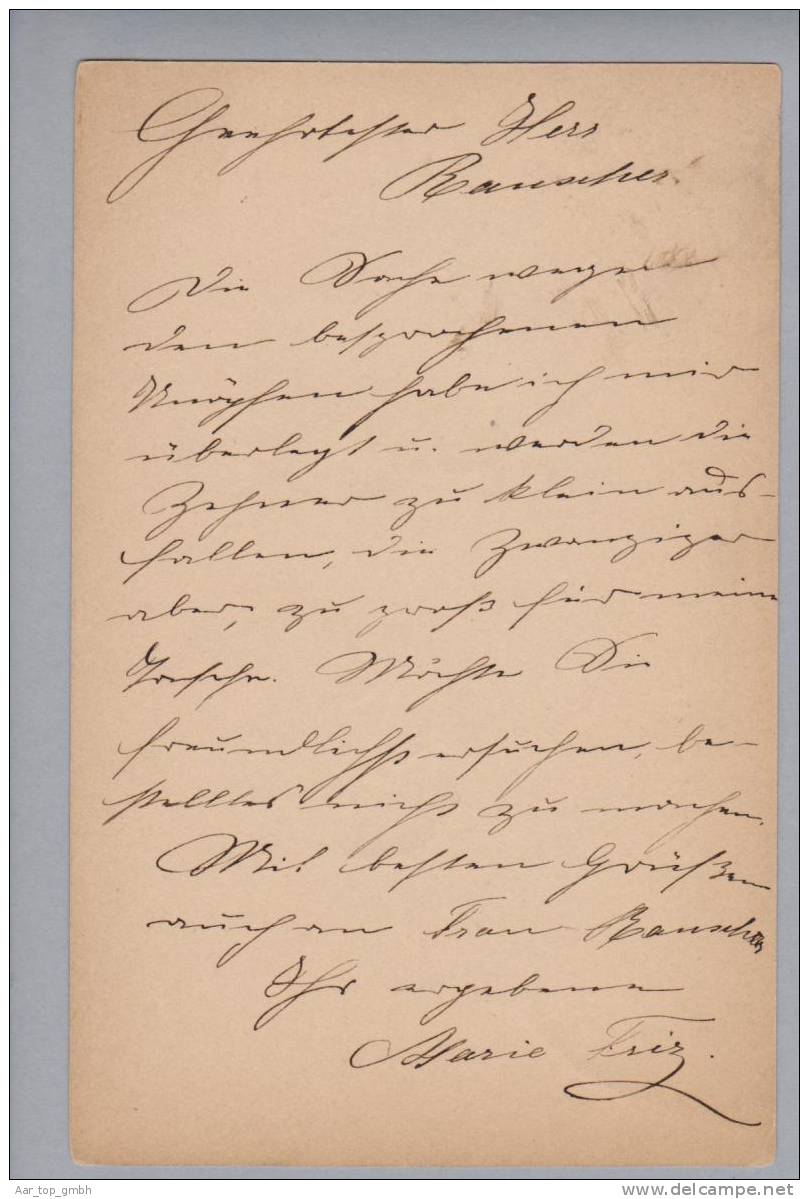 Geehrtester Herr
Rauscher.
Die Sache wegen
den besprochenen
Knöpfen habe ich mir
überlegt u. werden die
Zehner zu klein aus-
fallen, die Zwanziger
aber, zu groß für meine
Tasche. Möchte Sie
freundlichst ersuchen, be-
stelltes nicht zu machen.
Mit besten Grüßen
auch an Frau Rauscher
Ihr ergebene
Marie Friz.
Aar_top_gmbh
delcampe.net